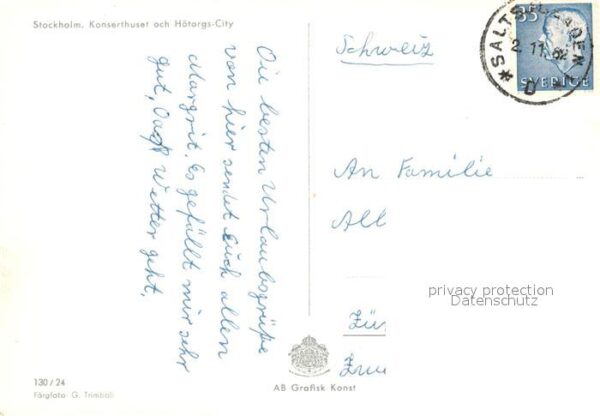 Stockholm. Konserthuset och Hötorgs-City
Die besten Urlaubsgrüße
von hier sendet Euch allen
Margrit. Es gefällt mir sehr
gut, Wetter geht.
Schweiz
An Familie
All
Zür
35
SVERIGE
* SALTSJÖBADEN 1 *
2 11 62
D
privacy protection
Datenschutz
AB Grafisk Konst
130/24
Färgfoto G. Trimboli